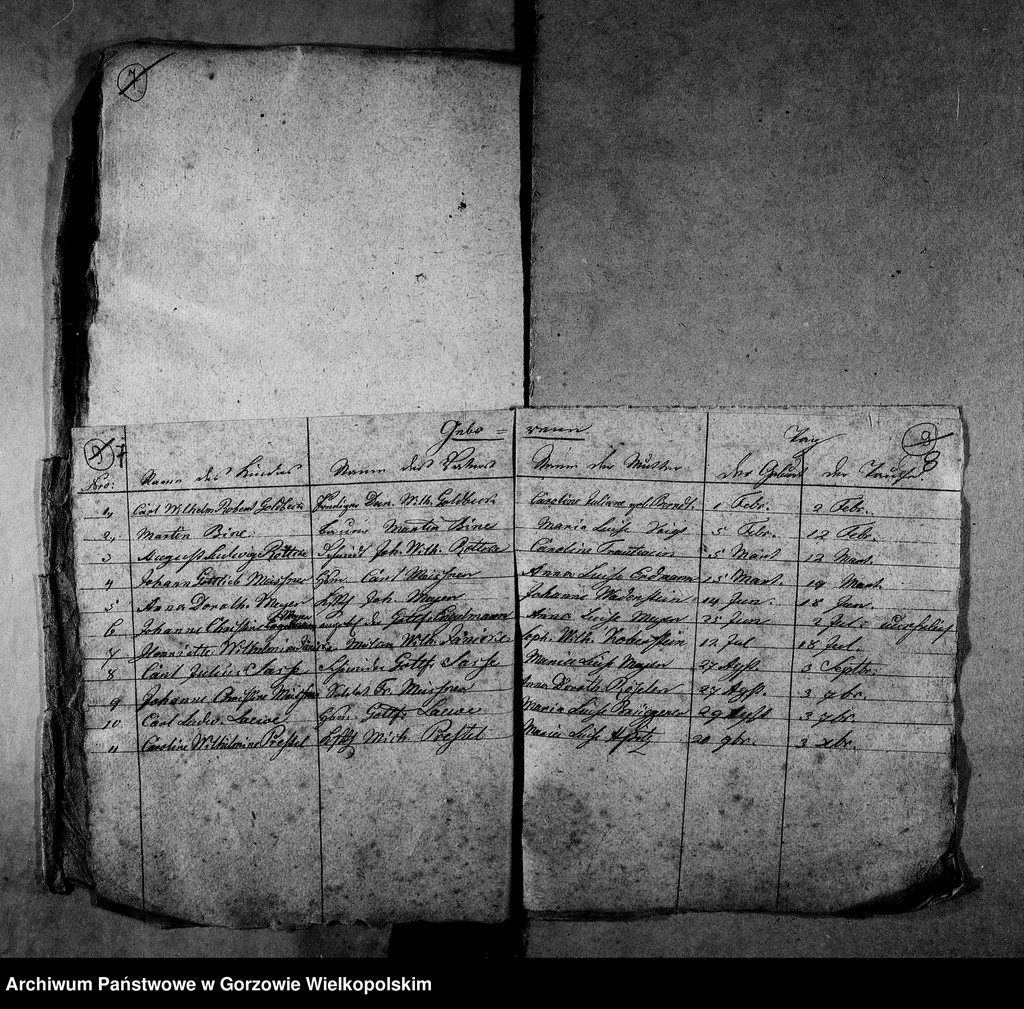 7
9 7
Gebo = renen
Tag
9
8
Nro: Name des Kindes Name des Vaters Name der Mutter der Geburt der Taufe.
1, Carl Wilhelm Robert Goldbeck Prediger Dan. Wilh. Goldbeck Caroline Juliane geb. Berndt. 1 Febr. 2 Febr.
2, Martin Bine. Bauer Martin Bine Maria Luise Voigt 5 Febr. 12 Febr.
3 August Ludwig Joh. Wilh. Caroline 5 Mart 12 Mart.
4 Johann Gottlieb Meissner Carl Meissner Anna Luise Erdmann 15 Mart. 19 Mart.
5 Anna Doroth. Meyer Joh. Meyer Johanne 14 Jun. 18 Jun.
6 Johanne Christine Anna Luise Meyer 25 Jun 2 Jul.
7 Henriette Wilhelmine Wilh. Soph. Wilh. Hohenstein 12 Jul 18 Jul.
8 Carl Julius Sasse Schneider Gottfr. Sasse Maria Luise Meyer 27 Agst. 3 Septbr.
9 Johanne Christine Meissner Fr. Meissner Anna Doroth. 27 Agst. 3 7br.
10 Carl Ludw. Laewe Gottfr. Laewe Maria Luise Brüggener 29 Agst 3 7br.
11 Caroline Wilhelmine Prestel Mich. Prestel Maria Luise 20 9br. 3 xbr.
Archiwum Państwowe w Gorzowie Wielkopolskim